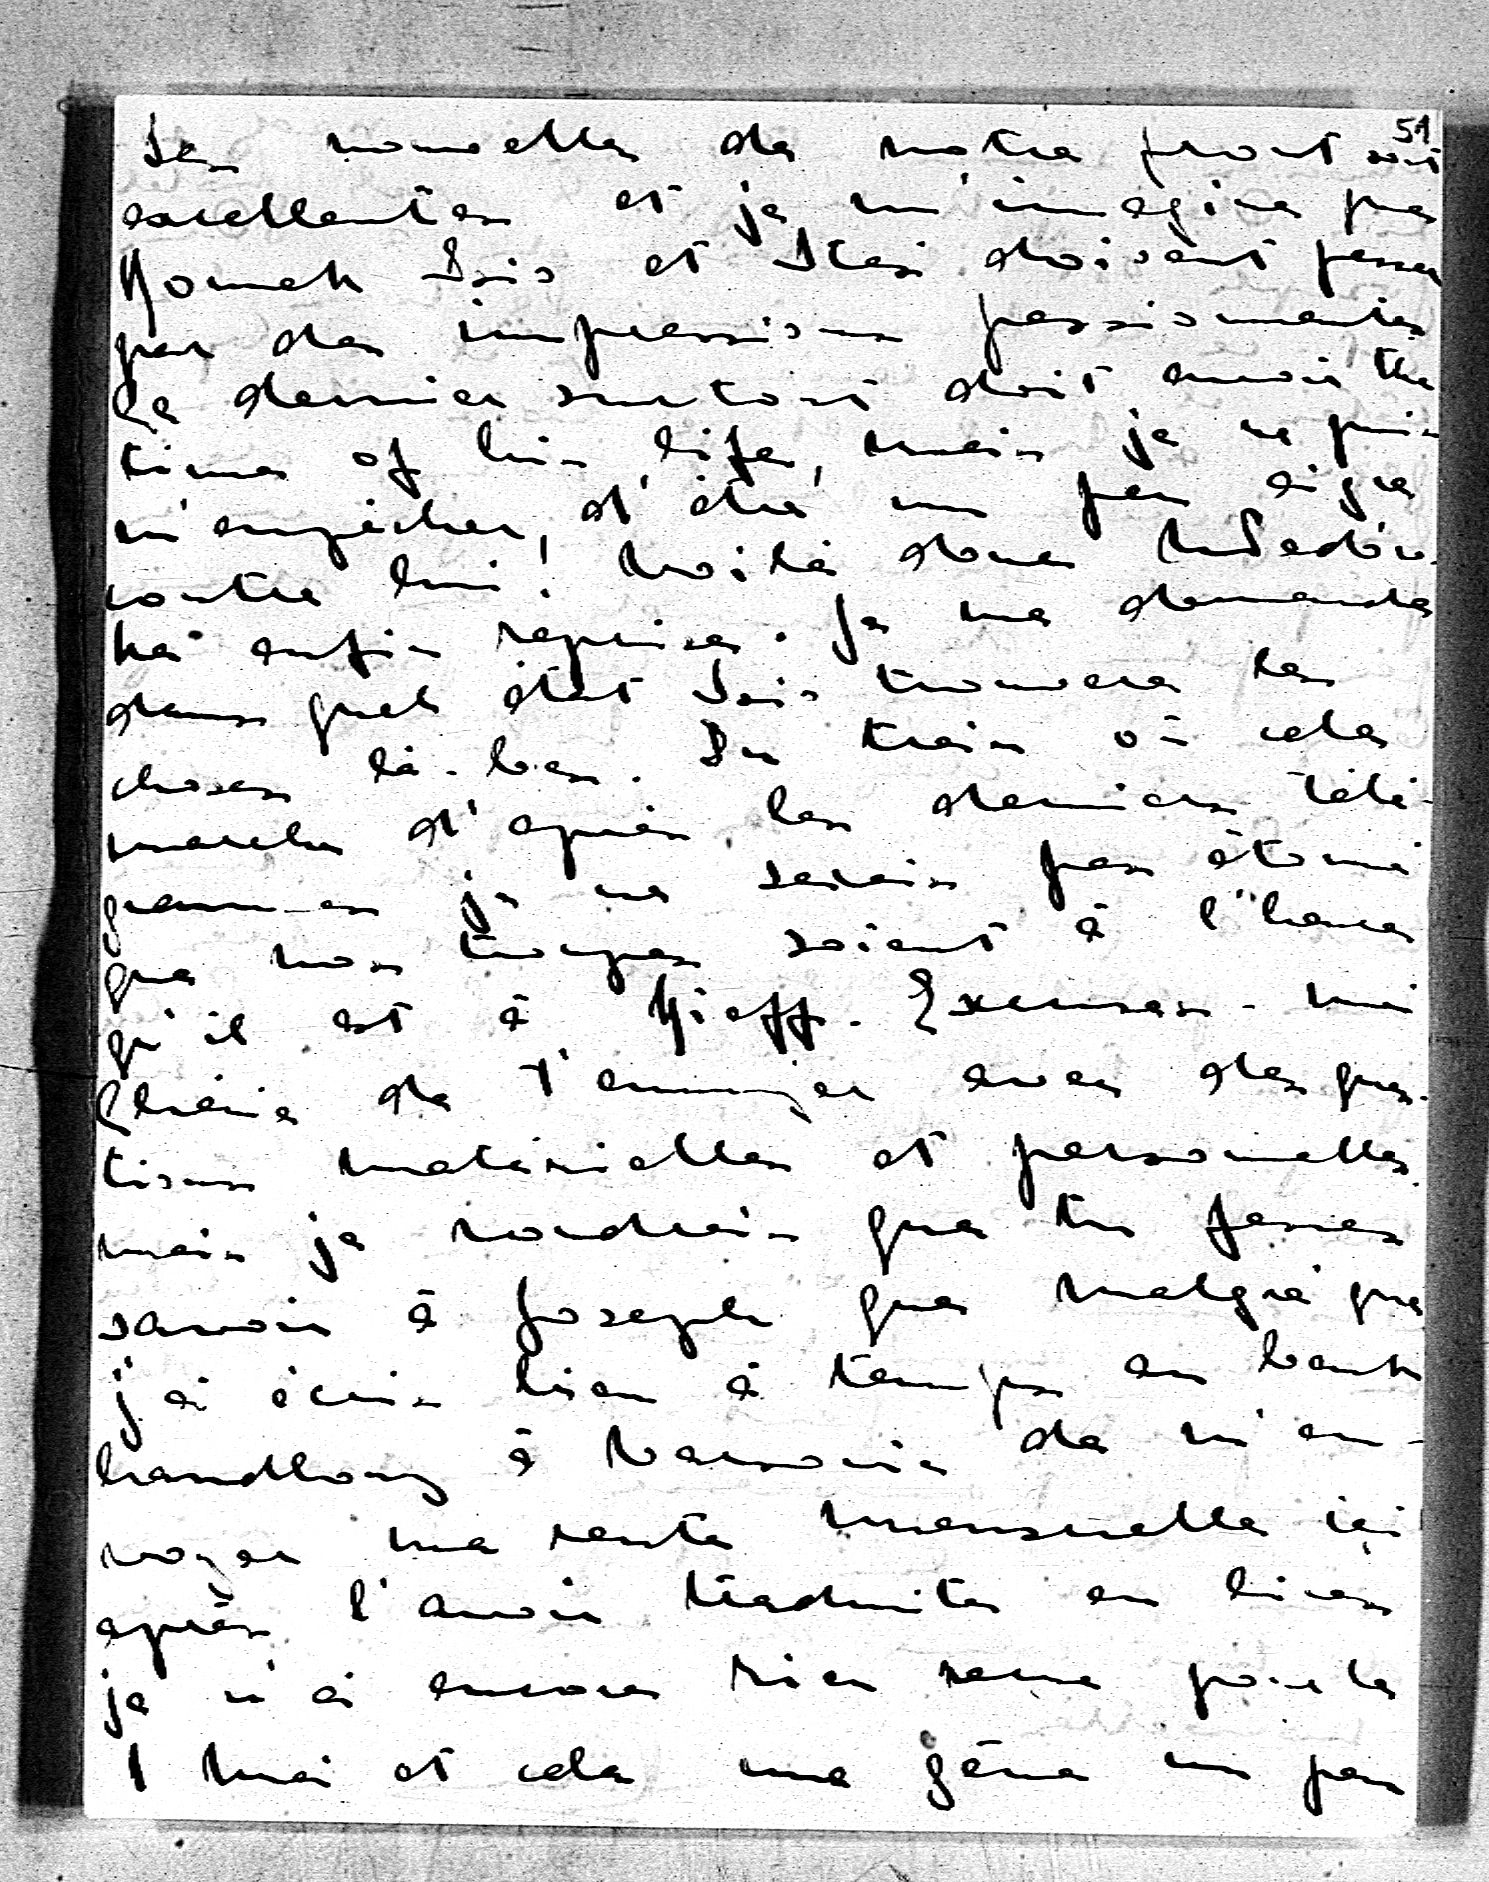 51
Les nouvelles de notre front sont
excellentes et je m'imagine que
Romek Zsis et Stas doivent passer
par des impressions passionnantes
Le dernier surtout doit avoir the
time of his life, mais je ne puis
m'empêcher, d'être un peu aigre
contre lui! Voilà donc Miedvi-
ha enfin reprise. Je me demande
dans quel état Zsis trouvera les
choses là-bas. Du train où cela
marche d'après les derniers télé-
grammes je ne serais pas étonné
que nos troupes soient à l'heure
qu'il est à Kieff. Excuses-moi
chérie de t'ennuyer avec des ques-
tions matérielles et personnelles
mais je voudrais que tu fasses
savoir à Joseph que malgré que
j'ai écris bien à temps au bank
handlowy à Varsovie de m'en-
voyer ma rente mensuelle ici
après l'avoir traduite en lires
je n'ai encore rien reçu pour le
1 mai et cela me gêne un peu